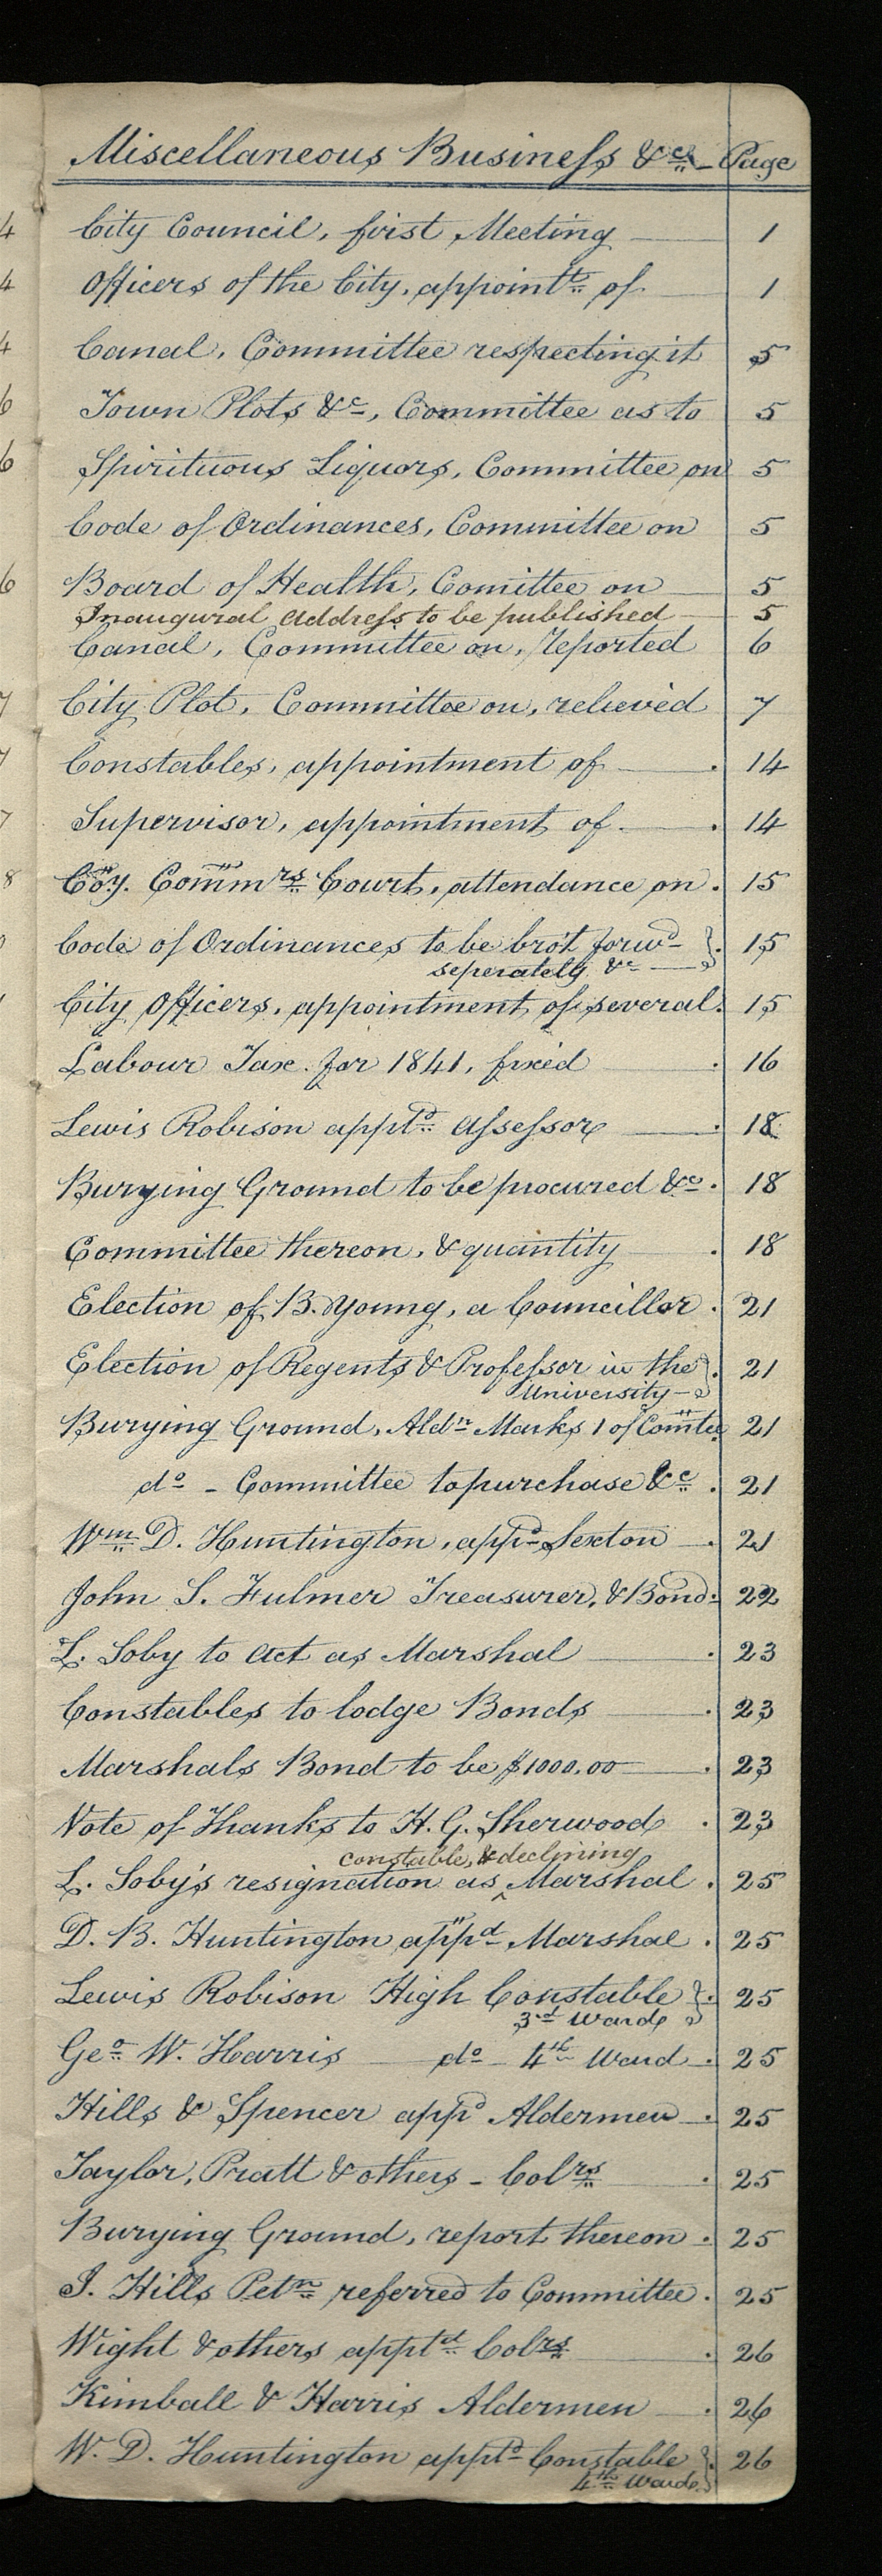 Miscellaneous Business &c. Page
City Council, first Meeting 1
Officers of the City, appointt. of 1
Canal, Committee respecting it 5
Town Plots &c, Committee as to 5
Spirituous Liquors, Committee on 5
Code of Ordinances, Committee on 5
Board of Health, Comittee on 5
Inaugural address to be published 5
Canal, Committee on, reported 6
City Plot, Committee on, relieved 7
Constables, appointment of 14
Supervisor, appointment of 14
Coy. Commrs. Court, attendance on 15
Code of Ordinances to be bro't forwd } 15
seperately &c
City Officers, appointment of several. 15
Labour Tax for 1841, fixed 16
Lewis Robison apptd. Assessor 18
Burying Ground to be procured &c. 18
Committee thereon, & quantity 18
Election of B. Young, a Councillor 21
Election of Regents & Professor in the } 21
University
Burying Ground, Aldn. Marks 1 of Comtee 21
do - Committee to purchase &c. 21
Wm. D. Huntington, appd. Sexton 21
John S. Fulmer Treasurer, & Bond 22
L. Soby to act as Marshal 23
Constables to lodge Bonds 23
Marshals Bond to be $1000.00 23
Vote of Thanks to H. G. Sherwood 23
constable, & declining
L. Soby's resignation as ^ Marshal 25
D. B. Huntington appd Marshal 25
Lewis Robison High Constable } 25
3rd Ward
Geo. W. Harris do 4th Ward 25
Hills & Spencer appd Aldermen 25
Taylor, Pratt & others - Colrs. 25
Burying Ground, report thereon 25
I. Hills Petn. referred to Committee 25
Wight & others apptd. Colrs. 26
Kimball & Harris Aldermen 26
W. D. Huntington apptd Constable } 26
4th Ward